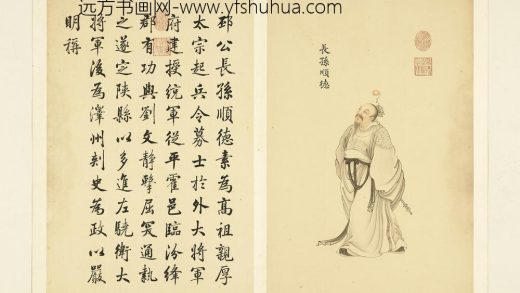 远方书画网-www.yfshuhua.com
長孫順德
邳公長孫順德素為高祖親厚
太宗起兵令募士於外大將軍
府建授統軍從平霍邑臨汾絳
郡有功與劉文靜擊屈突通執
之遂定陝縣以多進左驍衛大
將軍後為澤州刺史為政以嚴
明稱